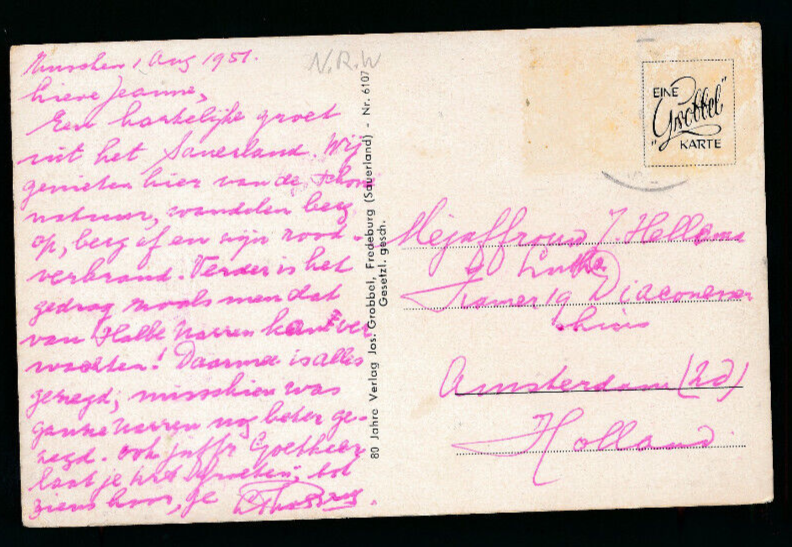 1 Aug 1951.
N.R.W
Lieve Jeanne,
Een hartelijke groet
uit het Sauerland. Wij
genieten hier van de schone
natuur, wandelen berg
op, berg af en zijn rood-
verbrand. Verder is het
gedrag zoals men dat
van Halbe Narren kan ver
wachten! Daarmee is alles
gezegd, misschien was
ganze Narren nog beter ge-
zegd. ook juffr
laat je groeten, tot
ziens hoor, je
80 Jahre Verlag Jos. Grobbel, Fredeburg (Sauerland) - Nr. 6107
Gesetzl. gesch.
EINE
"Grobbel"
KARTE
Mejuffrouw J. Hellema
Luth
Kamer 19 Diaconessen
huis
Amsterdam (Zd)
Holland.